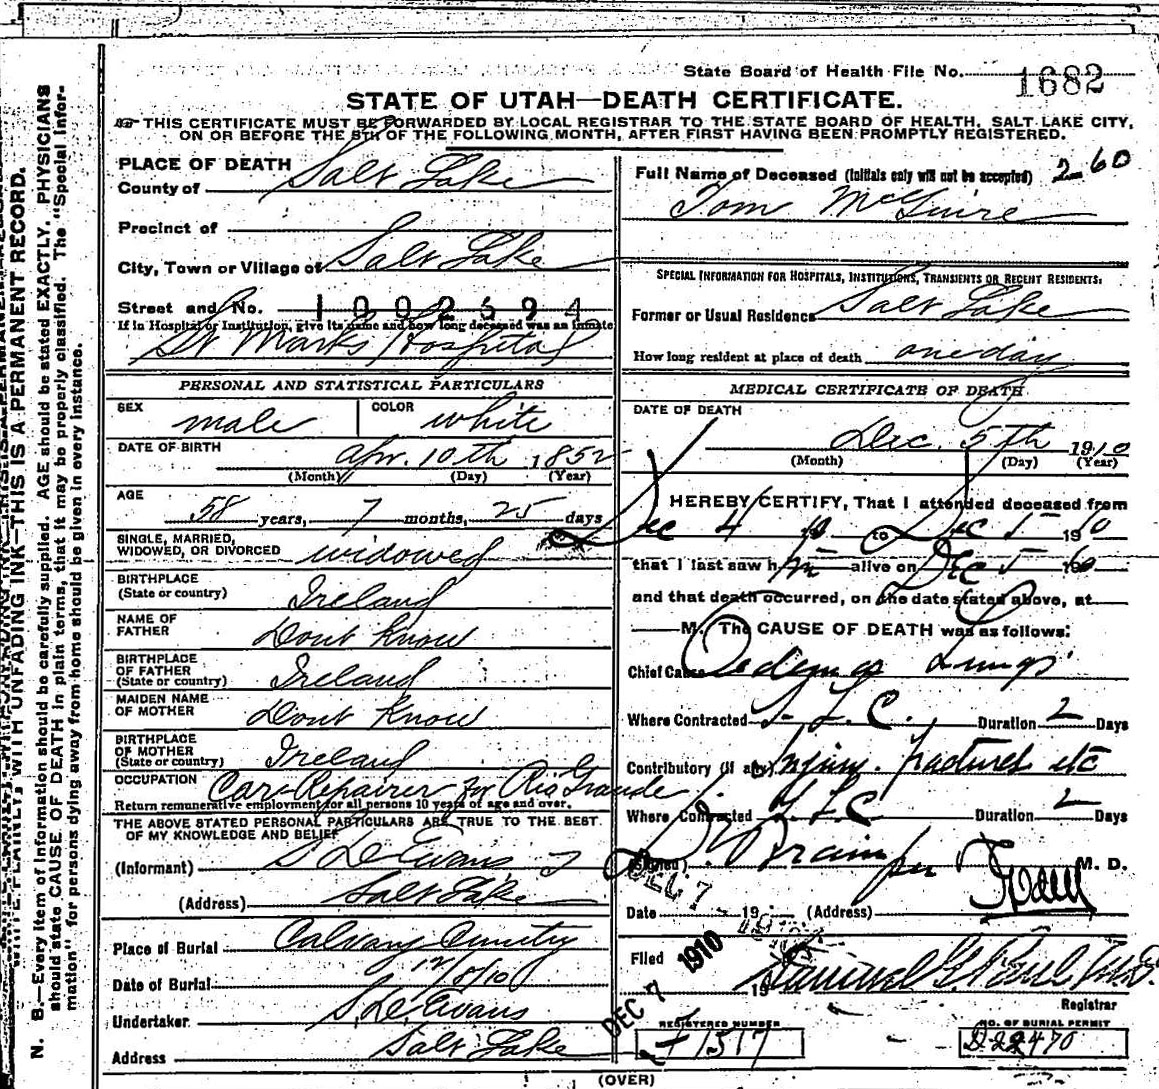 State Board of Health File No. 1682
STATE OF UTAH—DEATH CERTIFICATE.
THIS CERTIFICATE MUST BE FORWARDED BY LOCAL REGISTRAR TO THE STATE BOARD OF HEALTH, SALT LAKE CITY,
ON OR BEFORE THE 5TH OF THE FOLLOWING MONTH, AFTER FIRST HAVING BEEN PROMPTLY REGISTERED.
PLACE OF DEATH
County of Salt Lake
Precinct of
City, Town or Village of Salt Lake
Street and No. 1002694
If in Hospital or Institution, give its name and how long deceased was an inmate
St Marks Hospital
PERSONAL AND STATISTICAL PARTICULARS
SEX male COLOR white
DATE OF BIRTH Apr. 10th 1852
(Month) (Day) (Year)
AGE 58 years, 7 months, 25 days
SINGLE, MARRIED,
WIDOWED, OR DIVORCED widowed
BIRTHPLACE
(State or country) Ireland
NAME OF
FATHER Dont Know
BIRTHPLACE
OF FATHER
(State or country) Ireland
MAIDEN NAME
OF MOTHER Dont Know
BIRTHPLACE
OF MOTHER
(State or country) Ireland
OCCUPATION Car Repairer for Rio Grande
Return remunerative employment for all persons 10 years of age and over.
THE ABOVE STATED PERSONAL PARTICULARS ARE TRUE TO THE BEST
OF MY KNOWLEDGE AND BELIEF
(Informant) S. D. Evans
(Address) Salt Lake
Place of Burial Calvary Cemetery
Date of Burial 12/8/10
Undertaker S. D. Evans
Address Salt Lake
260
Full Name of Deceased (Initials only will not be accepted)
Tom McGuire
SPECIAL INFORMATION FOR HOSPITALS, INSTITUTIONS, TRANSIENTS OR RECENT RESIDENTS:
Former or Usual Residence Salt Lake
How long resident at place of death one day
MEDICAL CERTIFICATE OF DEATH
DATE OF DEATH
Dec. 5th 1910
(Month) (Day) (Year)
I HEREBY CERTIFY, That I attended deceased from
Dec 4 10 to Dec 5 1910
that I last saw him alive on Dec 5 1910
and that death occurred, on the date stated above, at
M. The CAUSE OF DEATH was as follows:
Chief Cause Oedema Lungs
Where Contracted S. L. C. Duration 2 Days
Contributory (if any) Injury. fractures etc
Where Contracted S. L. C Duration 2 Days
(Signed) M. D.
Date 19 (Address)
DEC 7 1910
Filed 19
Registrar
DEC 7 1910
REGISTERED NUMBER
1517
NO. OF BURIAL PERMIT
D22470
(OVER)
N. B.—Every item of information should be carefully supplied. AGE should be stated EXACTLY. PHYSICIANS
should state CAUSE OF DEATH in plain terms, that it may be properly classified. The "Special Infor-
mation" for persons dying away from home should be given in every instance.
WRITE PLAINLY, WITH UNFADING INK—THIS IS A PERMANENT RECORD.